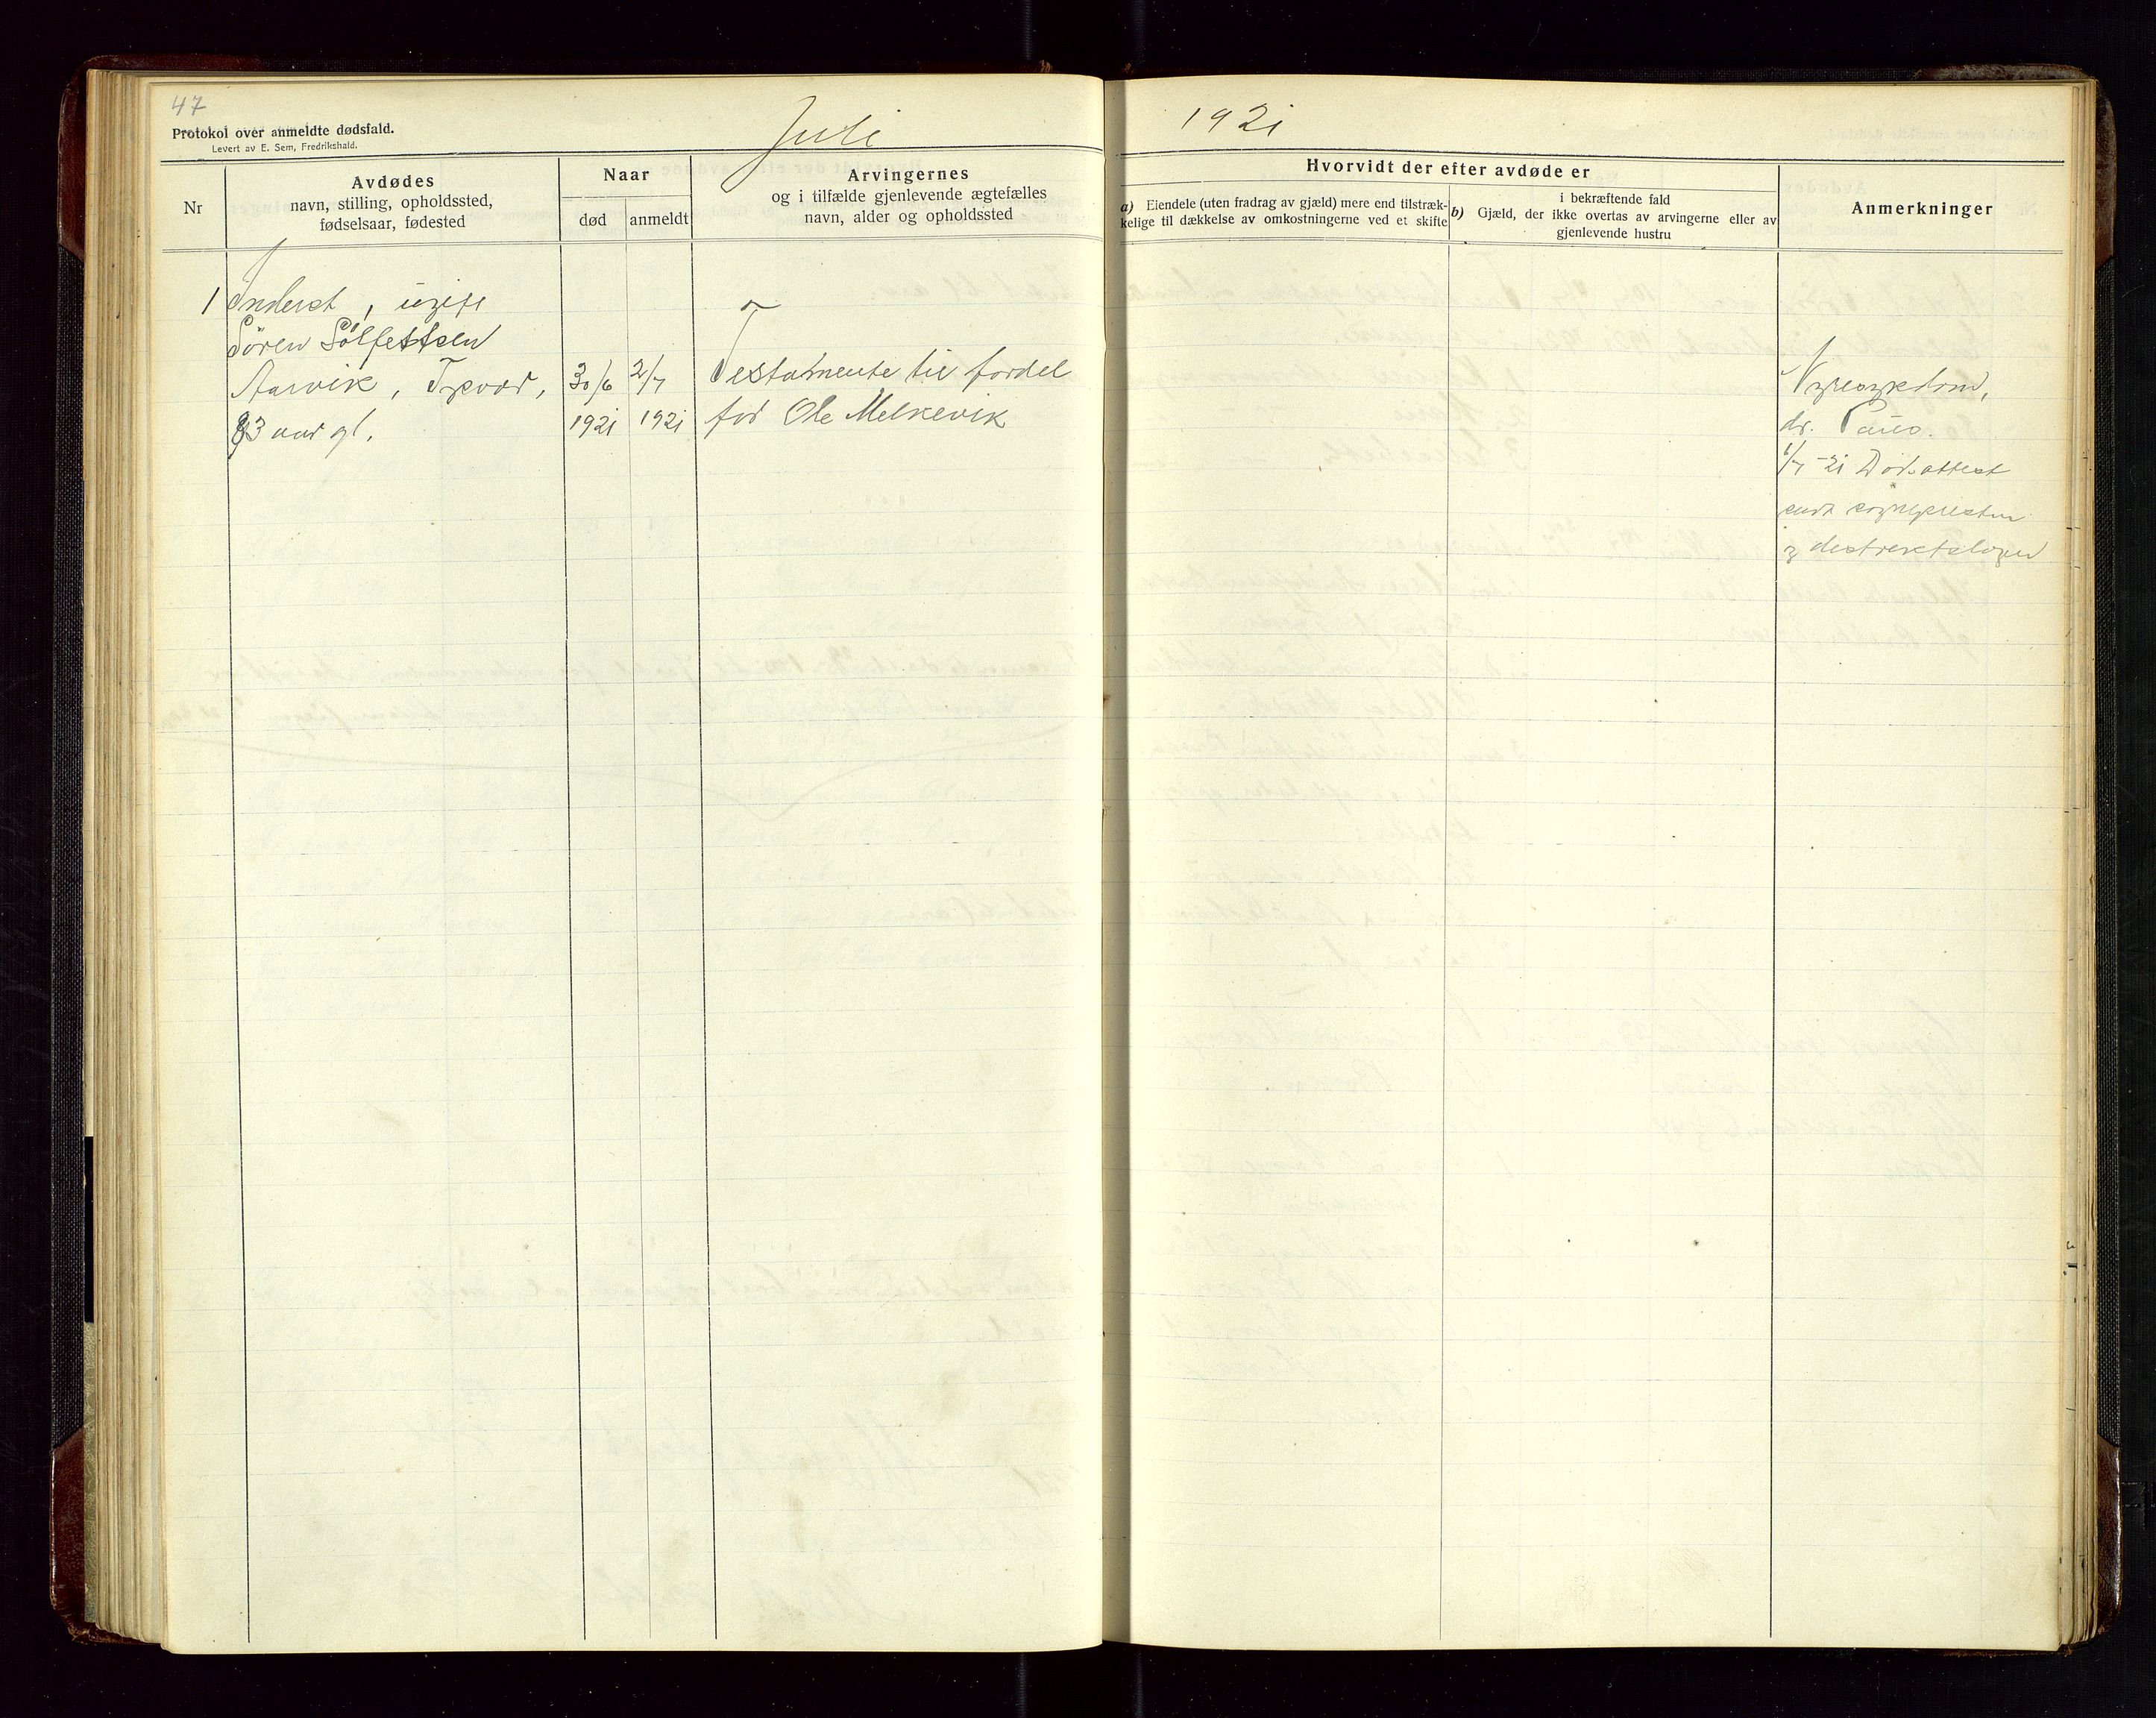 47
Protokol over anmeldte dødsfald.
Levert av E. Sem, Fredrikshald.
Juli
1921
Nr
Avdødes
navn, stilling, opholdssted,
fødselsaar, fødested
Naar
død
anmeldt
Arvingernes
og i tilfælde gjenlevende ægtefælles
navn, alder og opholdssted
Hvorvidt der efter avdøde er
a) Eiendele (uten fradrag av gjæld) mere end tilstræk-
kelige til dækkelse av omkostningerne ved et skifte
i bekræftende fald
b) Gjæld, der ikke overtas av arvingerne eller av
gjenlevende hustru
Anmerkninger
1 Inderst, ugift
Sören
Aarvik, Tysvær,
83 aar gl.
30/6
1921
2/7
1921
Testamente til fordel
for Ole Melkevik
Nyresykdom,
dr. Paus.
1/7 -21 Dødsattest
sendt sognepresten
og distriktslægen